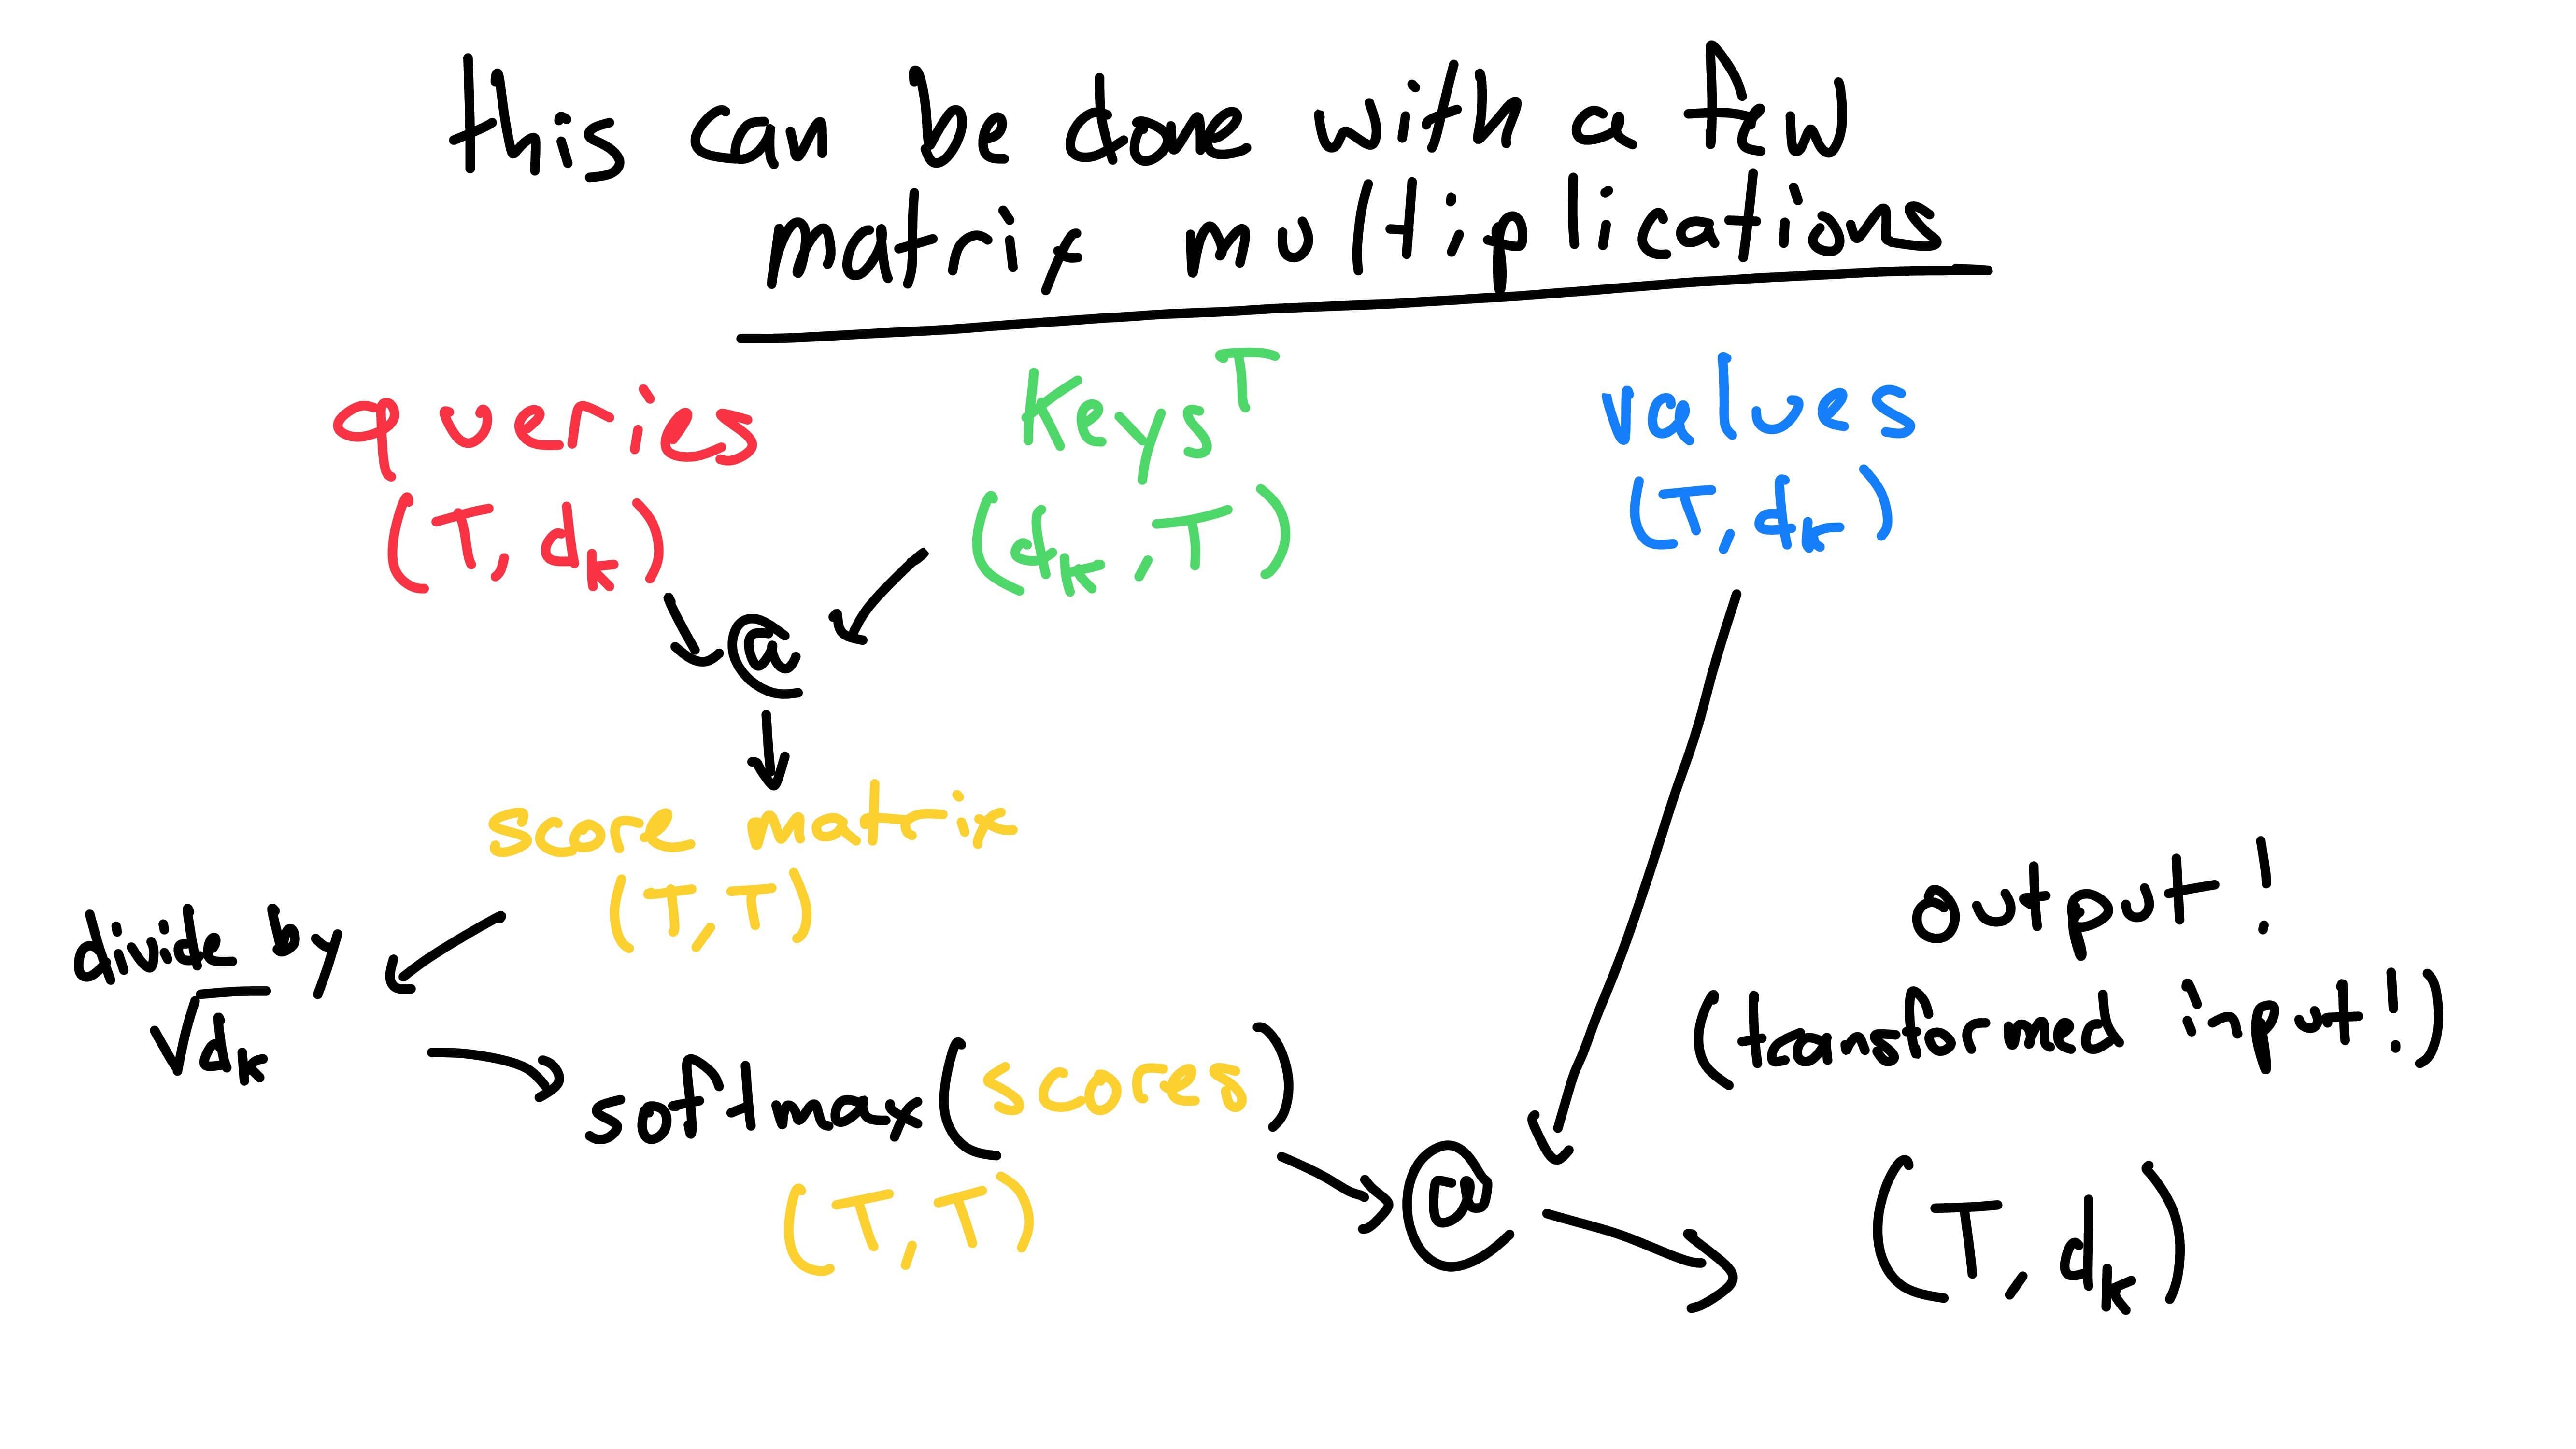 this can be done with a few
matrix multiplications
queries
(T, dₖ)
Keysᵀ
(dₖ, T)
values
(T, dₖ)
@
score matrix
(T, T)
divide by
√dₖ
softmax(scores)
(T, T)
@
output!
(transformed input!)
(T, dₖ)